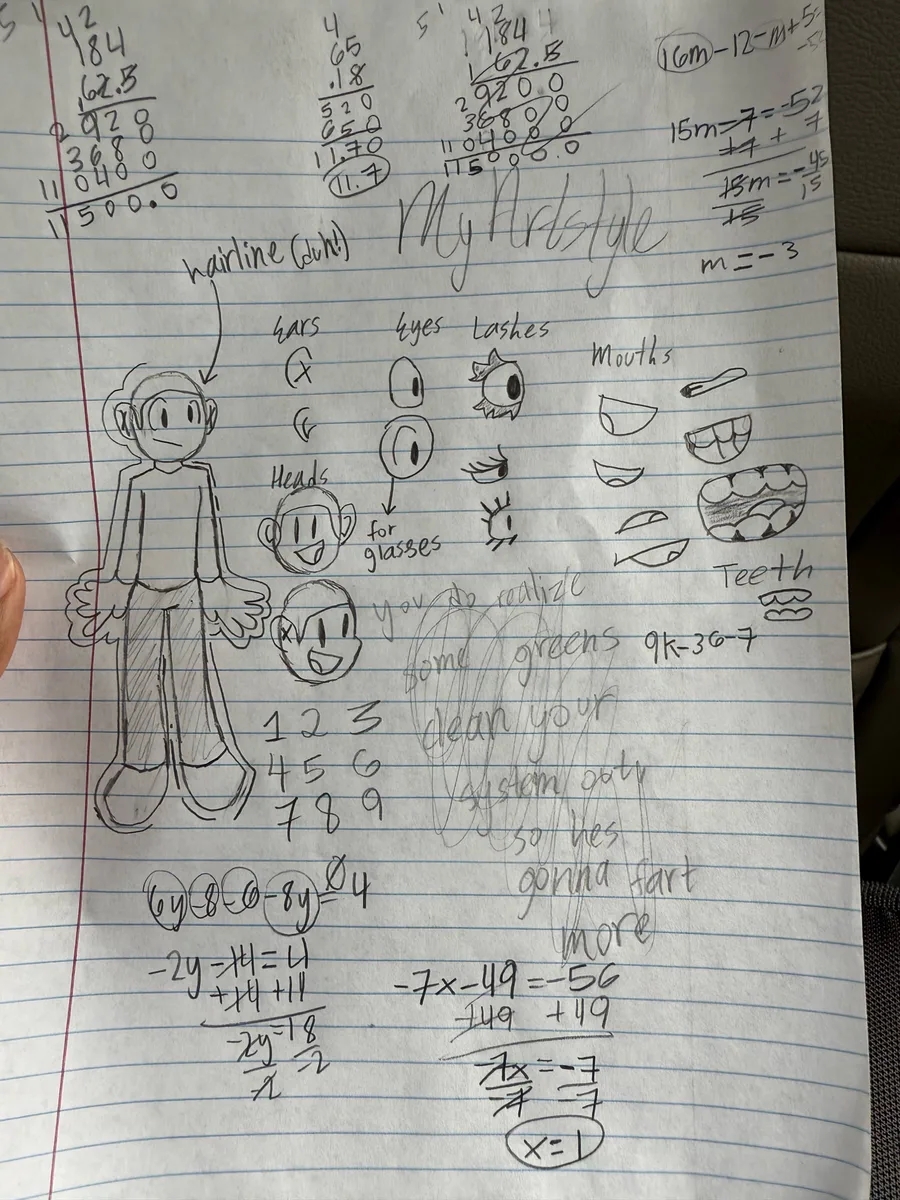 5
4 2
184
.62.5
920
2
368 0
8
11 0400
11500.0
4
65
.18
520
650
11.70
11.7
5 1 4 2 4
1184
1 62.5
9200
2
3680 0
11 0400 0
115000.0
16m-12-m+5
15m-7=-52
+7 + 7
15m=-45
15 15
m=-3
My Artstyle
hairline (duh!)
Ears
Eyes
Lashes
Mouths
Heads
for
glasses
Teeth
you do realize
some greens
clean your
system out
so hes
gonna fart
more
9k-36-7
1 2 3
4 5 6
7 8 9
6y-8-6-8y=4
-2y-14=4
+14 +14
-2y=18
-2 -2
-7x-49=-56
+49 +49
-7x=-7
-7 -7
x=1